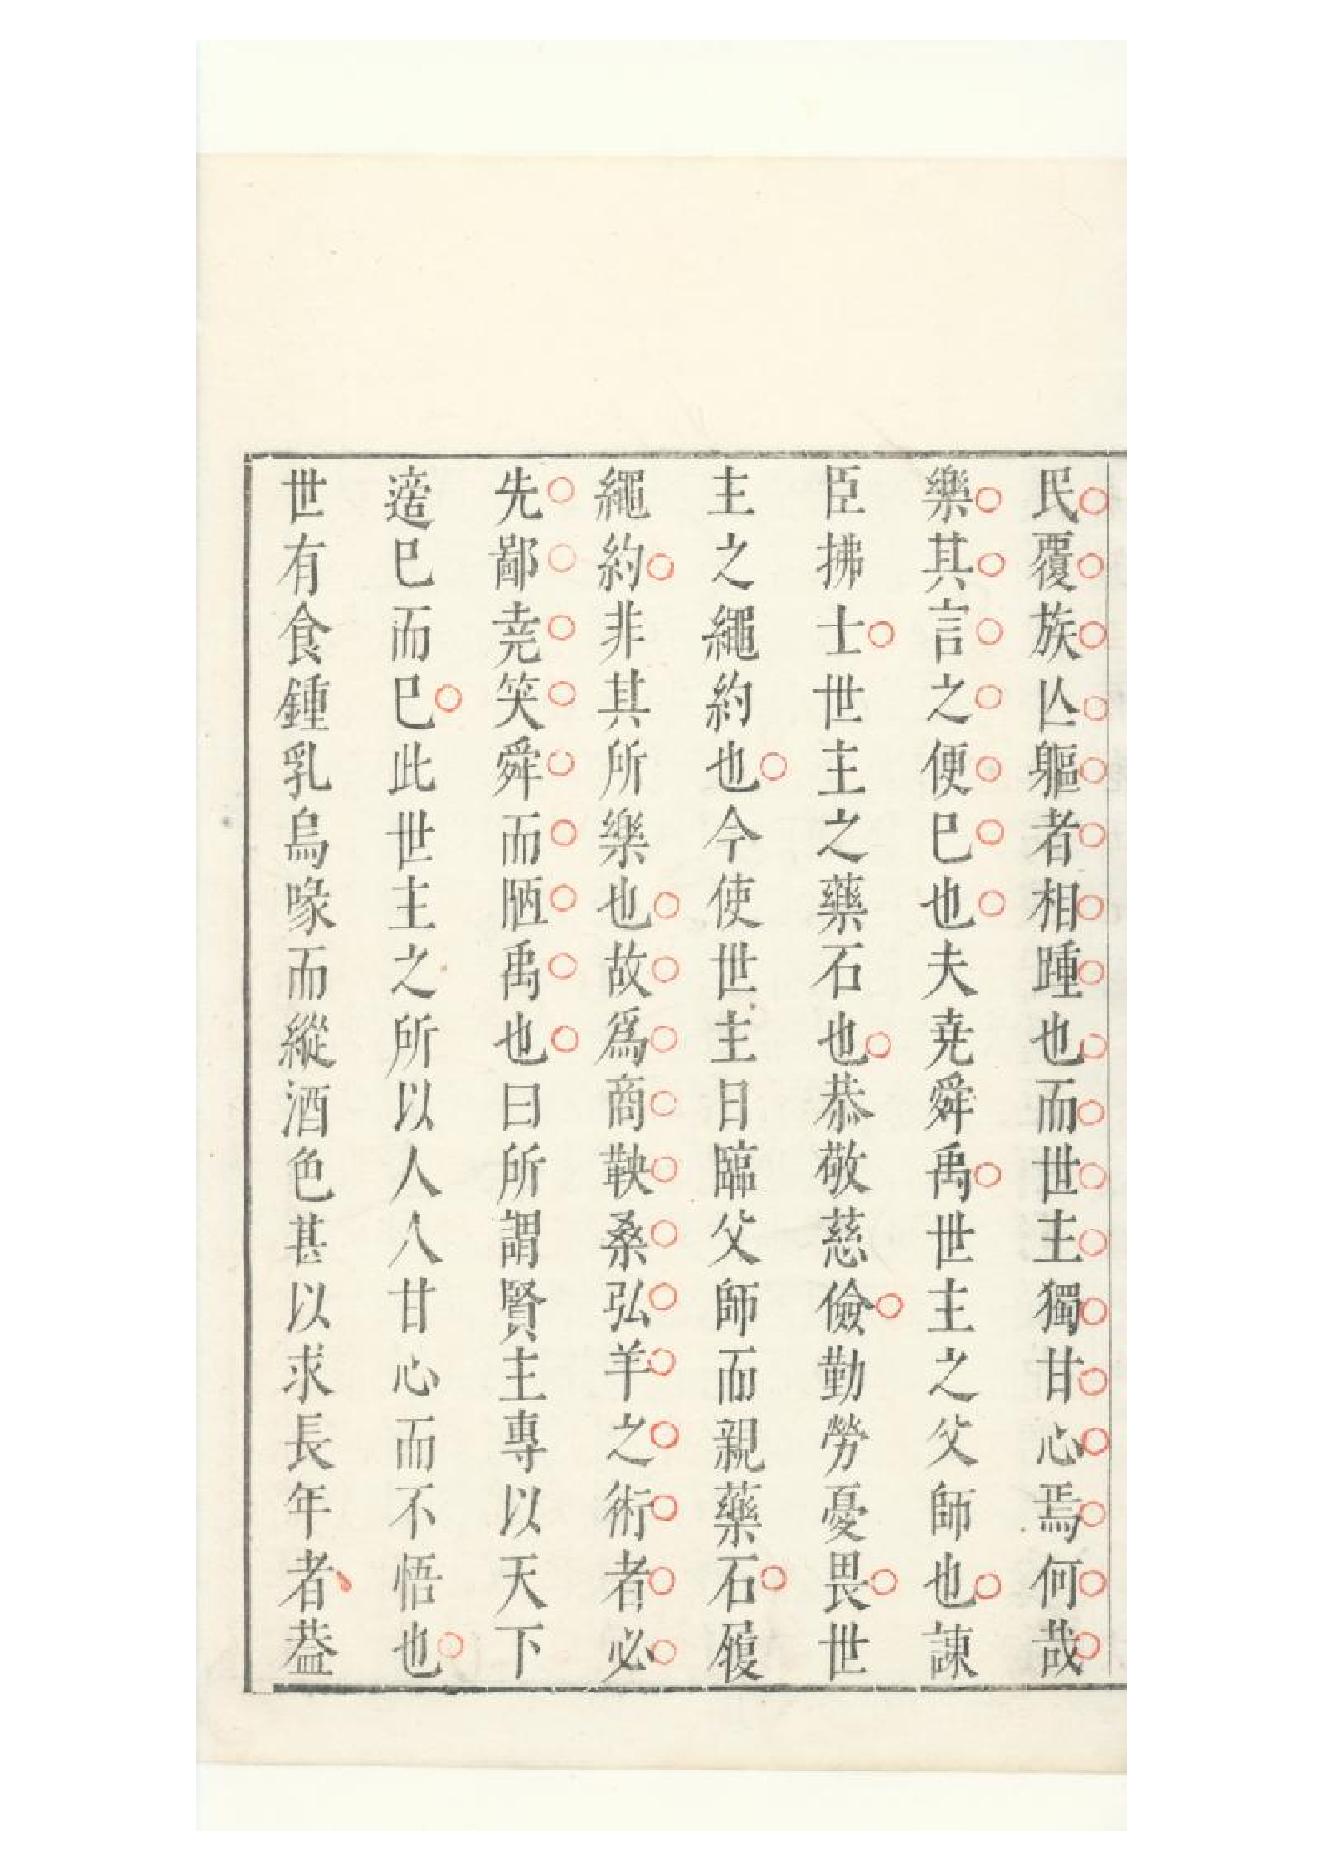 民覆族亾軀者相踵也而世主獨甘心焉何哉
樂其言之便巳也夫堯舜禹世主之父師也諫
臣拂士世主之藥石也恭敬慈儉勤勞憂畏世
主之繩約也今使世主日臨父師而親藥石履
繩約非其所樂也故爲商鞅桑弘羊之術者必
先鄙堯笑舜而陋禹也曰所謂賢主專以天下
適巳而巳此世主之所以人人甘心而不悟也
世有食鍾乳烏喙而縱酒色甚以求長年者葢